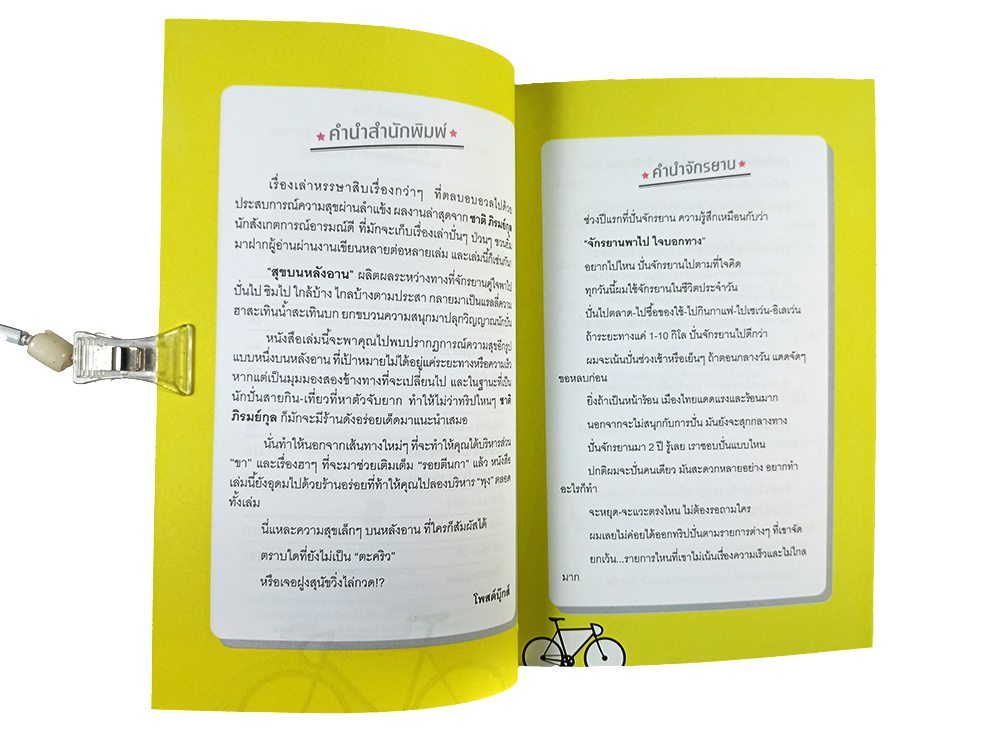 คำนำสำนักพิมพ์
เรื่องเล่าหรรษาสิบเรื่องกว่าๆ ที่ตลบอบอวลไปด้วย
ประสบการณ์ความสุขผ่านลำแข้ง ผลงานล่าสุดจาก ชาติ ภิรมย์กุล
นักสังเกตการณ์อารมณ์ดี ที่มักจะเก็บเรื่องเล่าปั่นๆ ป่วนๆ ชวนยิ้ม
มาฝากผู้อ่านผ่านงานเขียนหลายต่อหลายเล่ม และเล่มนี้ก็เช่นกัน!
"สุขบนหลังอาน" ผลิตผลระหว่างทางที่จักรยานคู่ใจพาไป
ปั่นไป ชิมไป ใกล้บ้าง ไกลบ้างตามประสา กลายมาเป็นแรลลี่ความ
ฮาสะเทินน้ำสะเทินบก ยกขบวนความสนุกมาปลุกวิญญาณนักปั่น
หนังสือเล่มนี้จะพาคุณไปพบปรากฏการณ์ความสุขอีกรูป
แบบหนึ่งบนหลังอาน ที่เป้าหมายไม่ได้อยู่แค่ระยะทางหรือความเร็ว
หากแต่เป็นมุมมองสองข้างทางที่จะเปลี่ยนไป และในฐานะที่เป็น
นักปั่นสายกิน-เที่ยวที่หาตัวจับยาก ทำให้ไม่ว่าทริปไหนๆ ชาติ
ภิรมย์กุล ก็มักจะมีร้านดังอร่อยเด็ดมาแนะนำเสมอ
นั่นทำให้นอกจากเส้นทางใหม่ๆ ที่จะทำให้คุณได้บริหารส่วน
"ขา" และเรื่องฮาๆ ที่จะมาช่วยเติมเต็ม "รอยตีนกา" แล้ว หนังสือ
เล่มนี้ยังอุดมไปด้วยร้านอร่อยที่ท้าให้คุณไปลองบริหาร "พุง" ตลอด
ทั้งเล่ม
นี่แหละความสุขเล็กๆ บนหลังอาน ที่ใครก็สัมผัสได้
ตราบใดที่ยังไม่เป็น "ตะคริว"
หรือเจอฝูงสุนัขวิ่งไล่กวด!?
โพสต์บุ๊กส์
คำนำจักรยาน
ช่วงปีแรกที่ปั่นจักรยาน ความรู้สึกเหมือนกับว่า
"จักรยานพาไป ใจบอกทาง"
อยากไปไหน ปั่นจักรยานไปตามที่ใจคิด
ทุกวันนี้ผมใช้จักรยานในชีวิตประจำวัน
ปั่นไปตลาด-ไปซื้อของใช้-ไปกินกาแฟ-ไปเซเว่น-อีเลเว่น
ถ้าระยะทางแค่ 1-10 กิโล ปั่นจักรยานไปดีกว่า
ผมจะเน้นปั่นช่วงเช้าหรือเย็นๆ ถ้าตอนกลางวัน แดดจัดๆ
ขอหลบก่อน
ยิ่งถ้าเป็นหน้าร้อน เมืองไทยแดดแรงและร้อนมาก
นอกจากจะไม่สนุกกับการปั่น มันยังจะสุกกลางทาง
ปั่นจักรยานมา 2 ปี รู้เลย เราชอบปั่นแบบไหน
ปกติผมจะปั่นคนเดียว มันสะดวกหลายอย่าง อยากทำ
อะไรก็ทำ
จะหยุด-จะแวะตรงไหน ไม่ต้องรอถามใคร
ผมเลยไม่ค่อยได้ออกทริปปั่นตามรายการต่างๆ ที่เขาจัด
ยกเว้น...รายการไหนที่เขาไม่เน้นเรื่องความเร็วและไม่ไกล
มาก